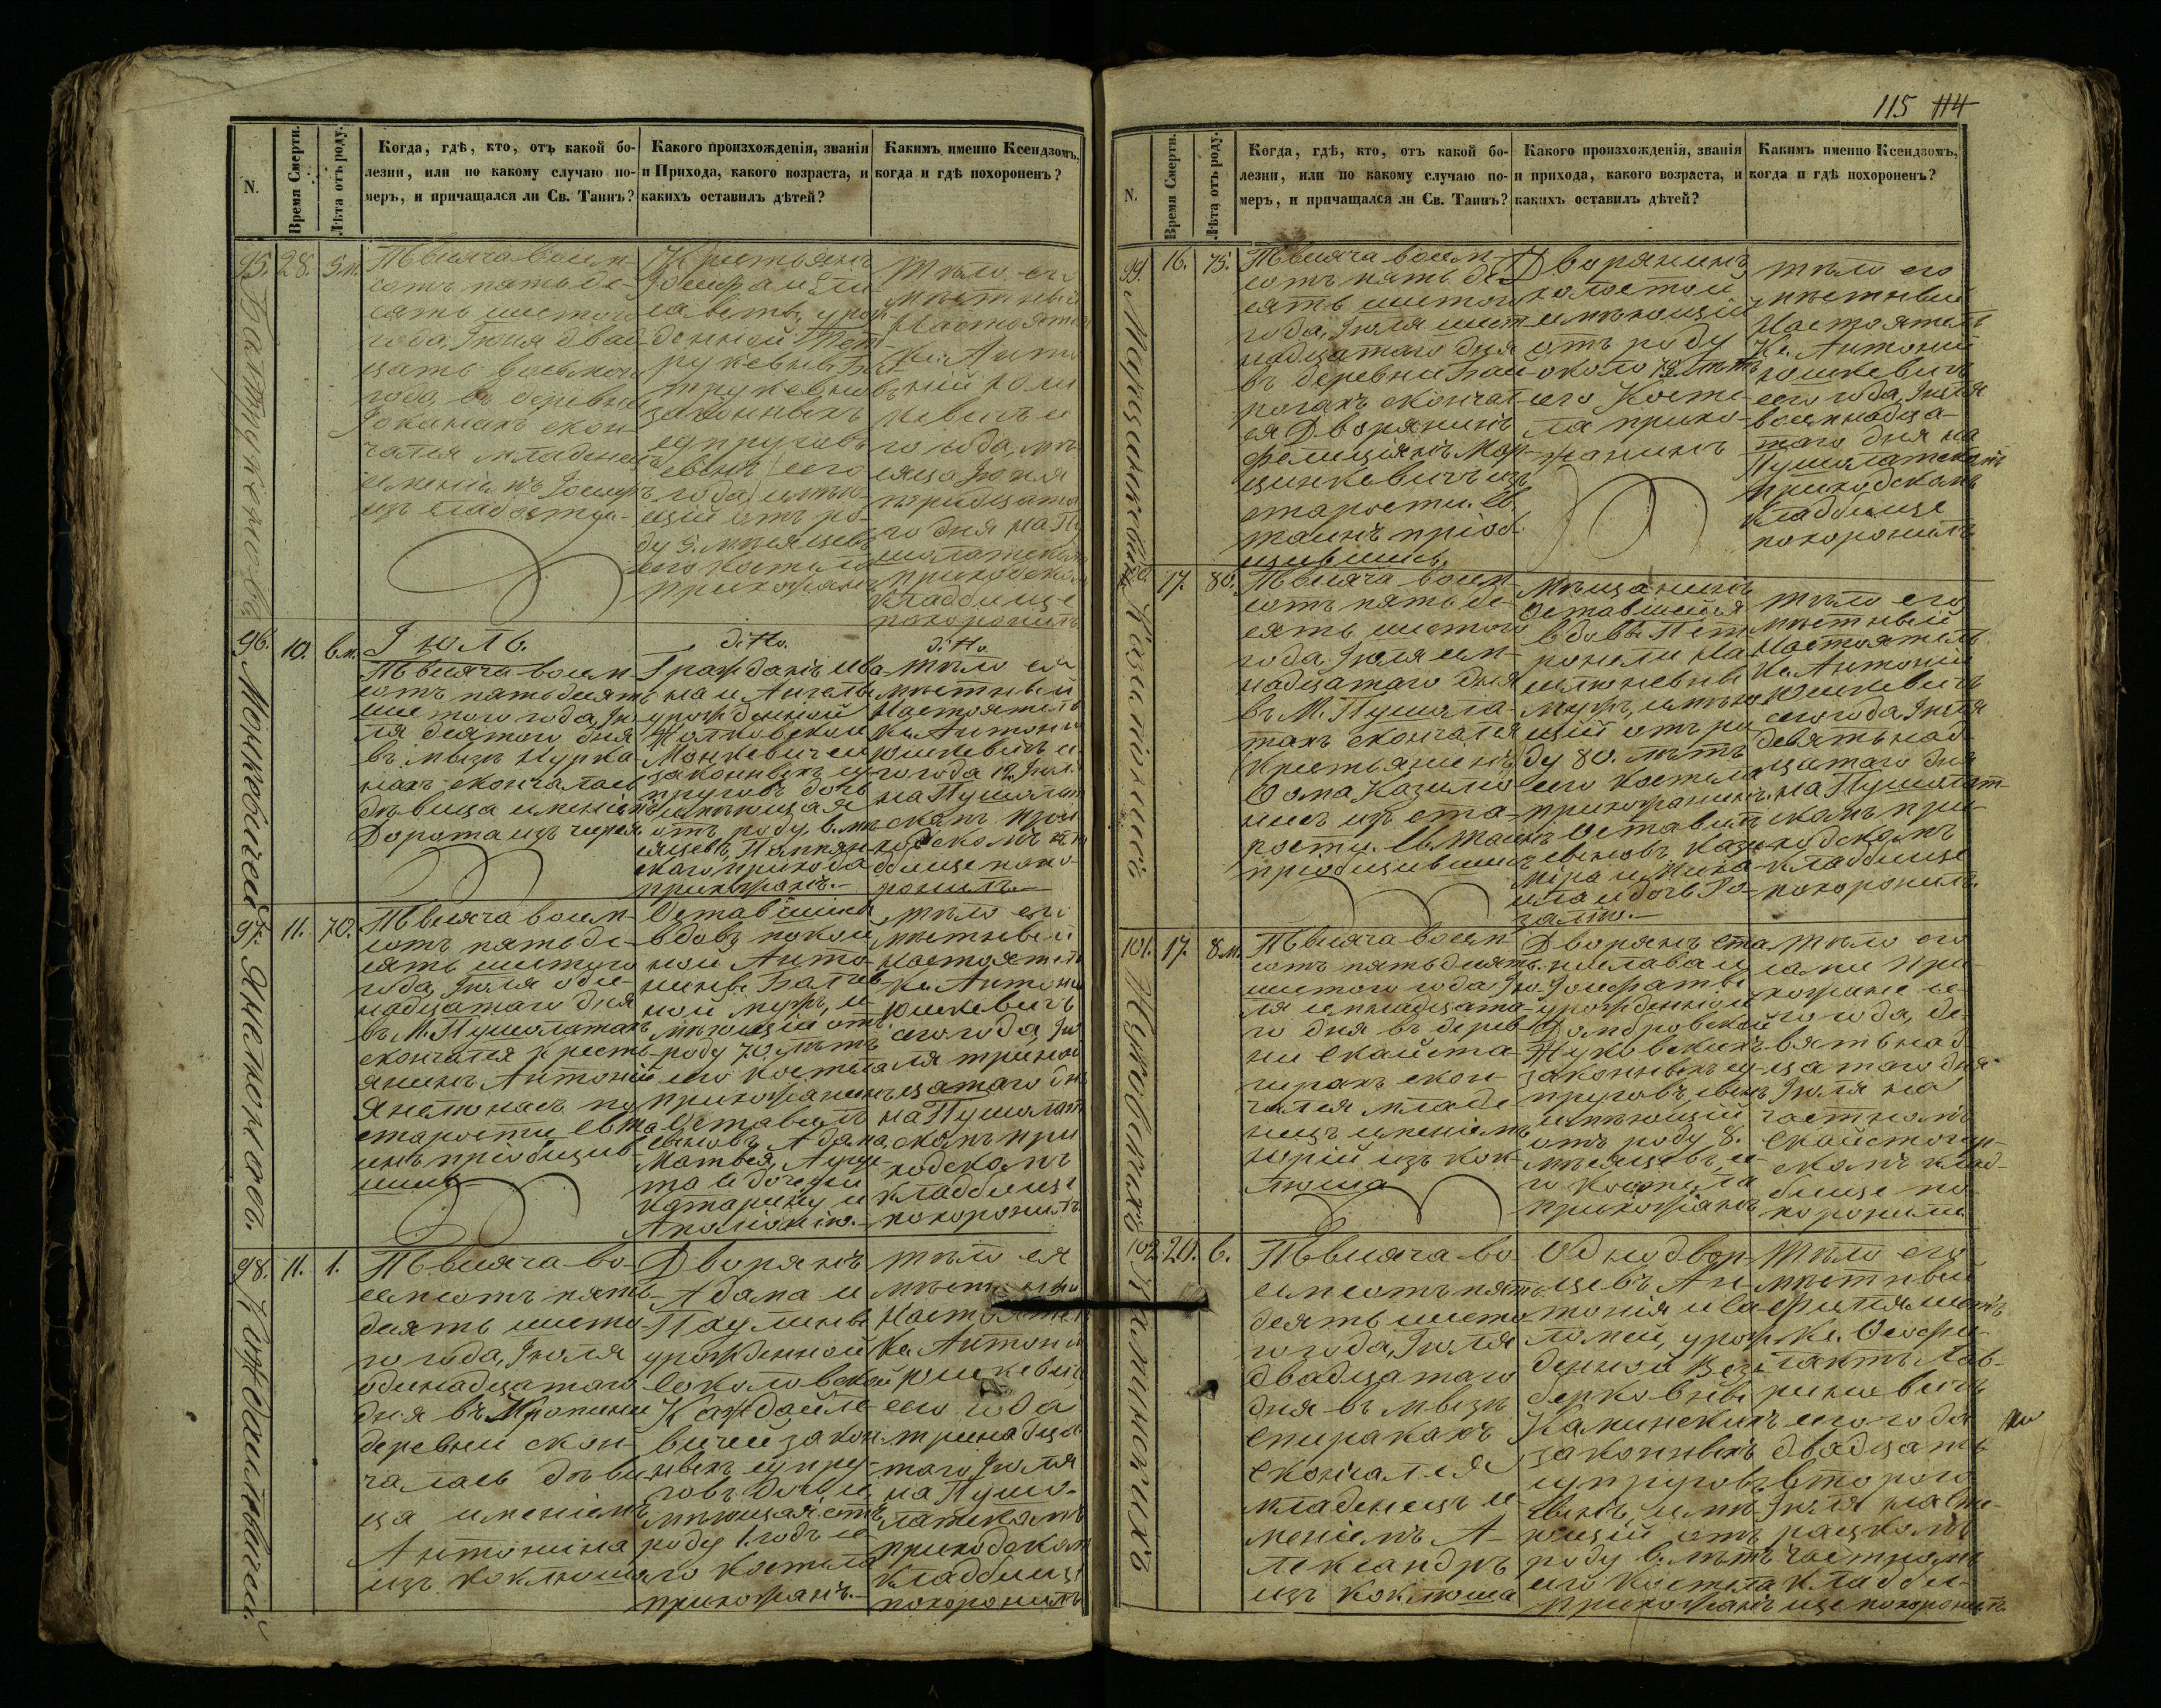 115 114
N.
Время Смерти.
Лѣта отъ роду.
Когда, гдѣ, кто, отъ какой бо-
лезни, или по какому случаю по-
меръ, и причащался ли Св. Таинъ?
Какого произхожденія, званія
и Прихода, какого возраста, и
какихъ оставилъ дѣтей?
Какимъ именно Ксендзомъ,
когда и гдѣ похороненъ?
95.
28.
5 м.
Тысяча восем-
сотъ пятьде-
сятъ шестого
года, Іюня двад-
цать восьмого
дня, въ деревни
скон-
чался младенец
именіемъ Іосифъ
изъ слабости.
Крестьянъ
Іосифа и Ели-
саветы, урож-
денной
законныхъ
супруговъ
сынъ, сего
года, имѣю-
щій отъ ро-
ду 5. мѣсяцевъ
сего костела
прихожанъ
Тѣло его
мѣстный
Настоятель
Кс. Антоній
Юшкевичъ се-
го года, мѣ-
сяца Іюня
тридцата-
го дня на Пу-
шолатскомъ
приходскомъ
кладбище
похоронилъ
96. Монкевичей
10.
6 м.
Іюль.
Тысяча восем-
сотъ пятьдесятъ
шестого года, Ію-
ля десятого дня
въ мызѣ
нахъ скончалась
дѣвица именіемъ
Дорота изъ чирея
d:tto.
Гражданъ Ива-
на и Ангелы
урожденной
Монкевичей
законныхъ су-
пруговъ дочь
имѣющая
отъ роду 6. мѣ-
сяцевъ,
скаго прихода
прихожанъ.
d:tto.
Тѣло ея
мѣстный
Настоятель
Кс. Антоній
Юшкевичъ се-
го года 12 Іюля
на Пушолат-
скомъ при-
ходскомъ кла-
дбище похо-
ронилъ.
97.
11.
70.
Тысяча восем-
сотъ пятьде-
сятъ шестого
года, Іюля оди-
надцатаго дня
въ М. Пушолатахъ
скончался кресть-
янинъ Антоній
по
старости Св. Та-
инъ пріобщив-
шись
Оставшійся
вдовѣ покой-
ной Анто-
нины
ной мужъ, и-
мѣющій отъ
роду 70. лѣтъ
сего костела
прихожанинъ
Оставилъ
сыновъ Адама,
Матвея, Авгу-
ста и дочерей
Катарину и
Аполонію.
Тѣло его
мѣстный
Настоятель
Кс. Антоній
Юшкевичъ
сего года, Ію-
ля тринад-
цатаго дня
на Пушолат-
скомъ при-
ходскомъ
кладбище
похоронилъ
98.
11.
1.
Тысяча во-
семсотъ пять-
десятъ шесто-
го года, Іюля
одинадцатаго
дня въ
деревни скон-
чалась дѣви-
ца именіемъ
Антонина
изъ коклюша
Дворянъ
Адама и
Паулины
урожденной
Соколовской
вичей закон-
ныхъ супру-
говъ дочь и-
мѣющая отъ
роду 1. годъ се-
го костела
прихожанъ.
Тѣло ея
мѣстный
Настоятель
Кс. Антоній
Юшкевичъ
сего года
тринадца-
таго Іюля
на Пушо-
латскомъ
приходскомъ
кладбище
похоронилъ
N.
Время Смерти.
Лѣта отъ роду.
Когда, гдѣ, кто, отъ какой бо-
лезни, или по какому случаю по-
меръ, и причащался ли Св. Таинъ?
Какого произхожденія, званія
и прихода, какого возраста, и
какихъ оставилъ дѣтей?
Какимъ именно Ксендзомъ,
когда и гдѣ похороненъ?
99.
16.
75.
Тысяча восем-
сотъ пятьде-
сятъ шестого
года, Іюля шест-
надцатаго дня
въ деревни
скончал-
ся Дворянинъ
Фелиціянъ Мар-
цинкевичъ изъ
старости. Св.
Таинъ пріоб-
щившись,
Дворянинъ
холостой
имѣющій
отъ роду
около 75 лѣтъ
сего Косте-
ла прихо-
жанинъ
Тѣло его
мѣстный
Настоятель
Кс. Антоній
Юшкевичъ
сего года, Іюля
восемнадца-
таго дня на
Пушолатскомъ
приходскомъ
кладбище
похоронилъ
17.
80.
Тысяча восем-
сотъ пятьде-
сятъ шестого
года, Іюля сем-
надцатаго дня
въ М. Пушола-
тахъ скончался
крестьянинъ
Ѳома
изъ ста-
рости. Св. Таинъ
пріобщившись
Мѣщанинъ
Оставшейся
вдовѣ Пет-
ронели
мужъ, имѣю-
щій отъ ро-
ду 80. лѣтъ
сего костела
прихожанинъ.
Оставилъ
сыновъ Кази-
міра и
и дочь Ро-
залію.
Тѣло его
мѣстный
Настоятель
Кс. Антоній
Юшкевичъ
сего года, Іюля
девятьнад-
цатаго дня
на Пушолат-
скомъ при-
ходскомъ
кладбище
похоронилъ
101. Жуковскихъ
17.
8 м.
Тысяча восем-
сотъ пятьдесятъ
шестого года, Ію-
ля семнадцата-
го дня въ дерев-
ни
скон-
чался младе-
нецъ именемъ
Юрій изъ кок-
люша
Дворянъ Ста-
нислава и
Іозефаты
урожденной
Домбровской
Жуковскихъ
законныхъ су-
пруговъ, сынъ
имѣющій
отъ роду 8.
мѣсяцевъ, се-
го Костела
прихожанъ
Тѣло его
сами при-
хожане се-
го года, де-
вятьнад-
цатаго дня
Іюля на
частномъ
скомъ клад-
бище по-
хоронили.
102. Каминскихъ
20.
6.
Тысяча во-
семсотъ пять-
десятъ шесто-
го года, Іюля
двадцатаго
дня въ мызѣ
Спираках
скончался
младенецъ и-
меніемъ А-
лександръ
изъ коклюша
Однодвор-
цевъ Ан-
тонія и Са-
ломеи, урож-
денной
Каминскихъ
законныхъ
супруговъ
сынъ, имѣ-
ющій отъ
роду 6. лѣтъ
сего Костела
прихожанъ
Тѣло его
мѣстный
Кс. Ѳеофи-
сего года
двадцать
второго
Іюля на
частномъ
кладби-
ще похоронилъ